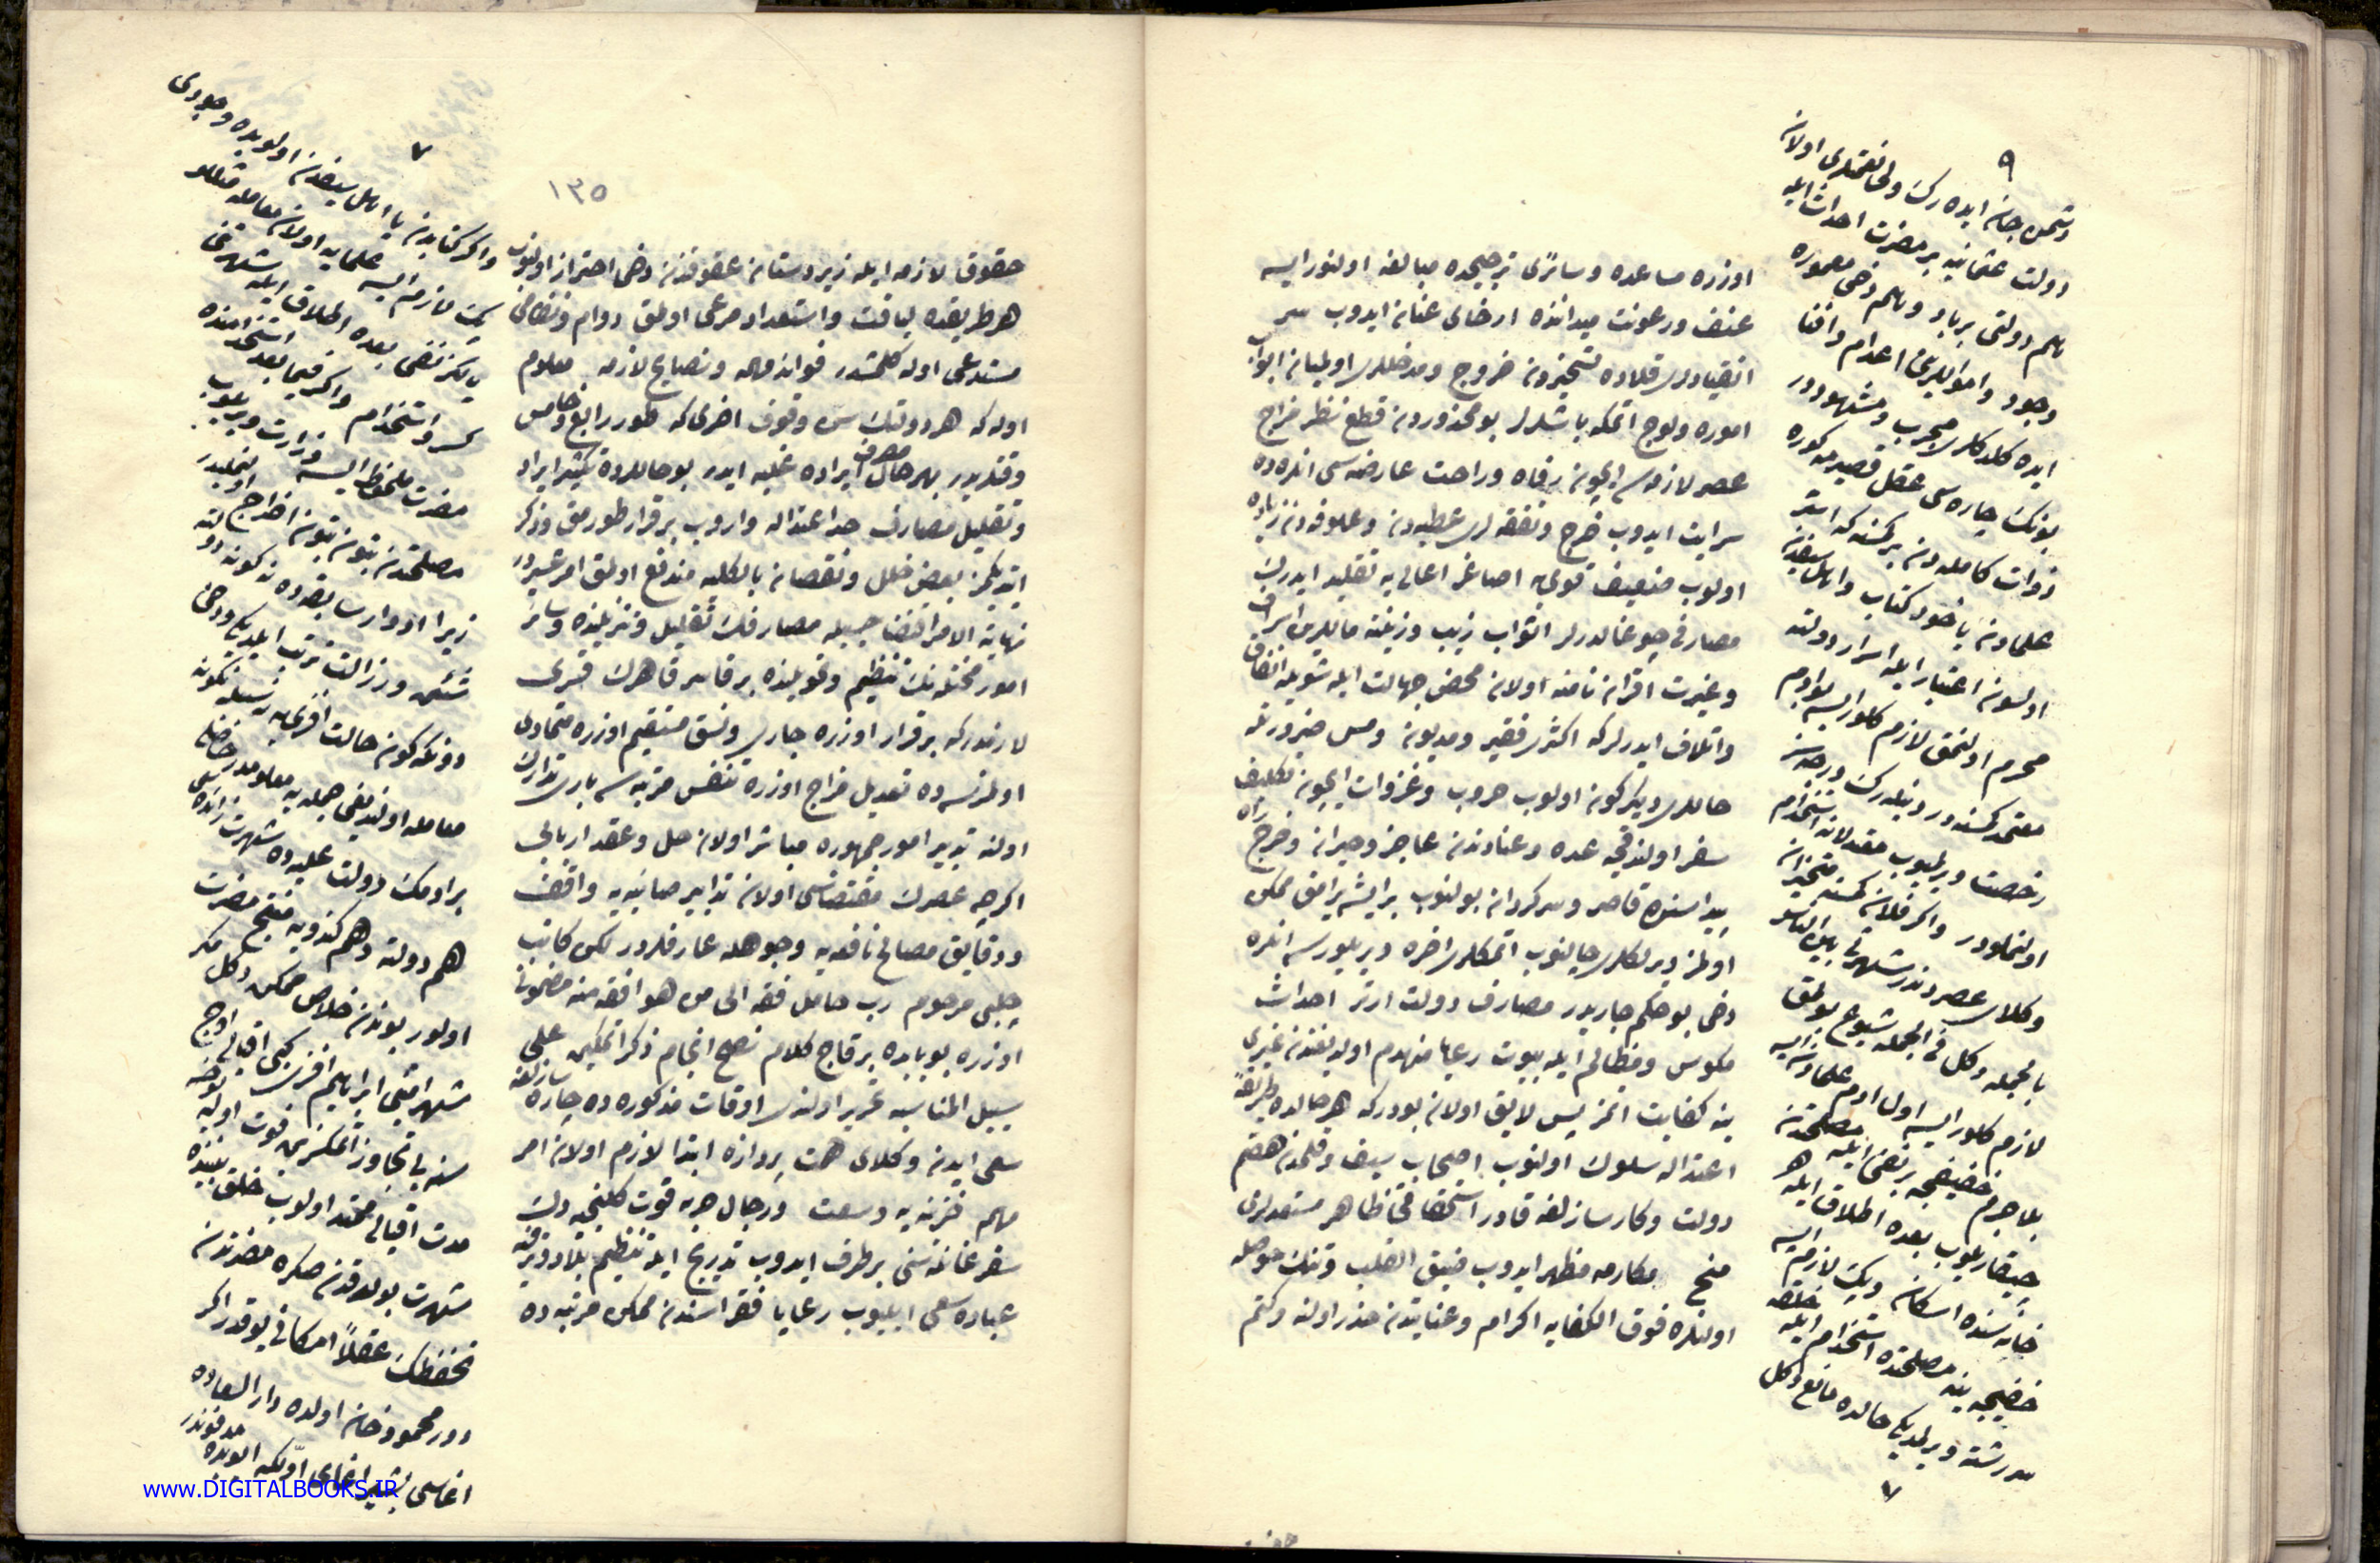 اوزره مساعده و سائری ترجیحده مبالغه اولنور ایسه
عنف و رعونت میداننده ارخای عنان ایدوب سر
انقیادلری قلاده تسخیردن خروج و مدخللری اولمیان ابواب
اموره ولوج اتمكه باشلرلر بو محذوردن قطع نظر مزاج
عصر لازمه سی ایچون رفاه و راحت عارضه سی انلرده ده
سرایت ایدوب خرج و نفقه لری عطیه دن و علوفه دن زیاده
اولوب ضعیف قوی یه اصاغر اعالی یه تقلید ایدرك
مصارفی چوغالدرلر اثواب زیب و زینته ماللرین اسراف
و غیرت اقران نامنه اولان محض جهالت ایله شویله انفاق
و اتلاف ایدرلر كه اكثری فقیر و مدیون و مس ضرورتله
حاللری دیكركون اولوب حروب و غزوات ایچون تكلیف
سفر اولندقجه عده و عتادندن عاجز و حیران و خرج راه
بیداسنده قاصر و سركردان بولنوب بر ایشه یرامق ممكن
اولمز ویرلكلری چالنوب اتمكلری اخره ویریلورسه انلره
دخی بو حكم جاریدر مصارف دولت ارتر احداث
مكوس و مظالم ایله بیوت رعایا منهدم اولدیغندن غیری
ینه كفایت اتمز پس لایق اولان بودر كه هر حالده طریقه
اعتداله سلوك اولنوب اصحاب سیف و قلمدن هضم
دولت و كارسازلغه قادر استحقاقی ظاهر مستعدلری
منح مكارمه مظهر ایدوب ضیق القلب و تنك حوصله
اولنلره فوق الكفایه اكرام و عنایتدن حذر اولنه و كتم
۹
دشمن جان ایده رك ولی نعمتلری اولان
دولت عثمانیه بر مضرت احداث ایله
هم دولتی برباد و هم دخی معموره
وجود و اموالرین اعدام و افنا
ایده كلدكلری مجرب و مشهوددر
بونك چاره سی عقل قصیرمه كوره
ذوات كامله دن بر كمسنه كه استر
علمادن یاخود كتاب و اهل سیفدن
اولسون اعتبار ایله اسرار دولته
محرم اولنمق لازم كلور ایسه بو ادم
معتمد كمسنه در دینلرك درجه سز
رخصت ویرلمیوب مقدلانه استخدام
اولنملودر و اكر فلان كمسنه متحیزان
وكلای عصردندر شهرتی بین الناس
بالجمله دكل فی الجمله شیوع بولمق
لازم كلور ایسه اول ادم علمادن ایسه
بلا جرم خفیفجه بر نفی ایله مصلحتدن
چیقاریلوب بعده اطلاق ایله
خانه سنده اسكان و پك لازم ایسه
خفیفجه ینه مصلحتده استخدام ایله
سررشته ویرلمدیكی حالده مانع دكل
۷
۷
۱۳۵
حقوق لازمه ایله زیردستان عقوقندن دخی احتراز اولنوب
هر طریقده لیاقت و استعداد مرعی اولمق دوام و نظامی
مستدعی اوله كلمشدر فوائد مهمه و نصایح لازمه معلوم
اوله كه هر دولتك سن وقوف اخری كه طور رابع و خامس
وقتلریدر بهر حال مصرف ایراده غلبه ایدر بو حاللرده تكثیر ایراد
و تقلیل مصارف حد اعتداله واروب برقرار طورمق و ذكر
اتدیكمز بعض خلل و نقصان بالكلیه مندفع اولمق امر عسیردر
نهایة الامر اقتضا حسبیله مصارفك تقلیل و تنزیلنده و سائر
امور مختله نك تنظیم و تعدیلنده بر قاسر قاهرك قسری
لازمدر كه برقرار اوزره جاری و نسق مستقیم اوزره متمادی
اولمزسه ده تعدیل مزاج اوزره تنفس مرتبه سی باری تدارك
اولنه تدبیر امور جمهوره مباشر اولان حل و عقد اربابی
اكرچه عصرك مقتضاسی اولان تدابیر صائبه یه واقف
و دقایق مصالح نافعه یه وجوهله عارفلردر لكن كاتب
چلبی مرحوم رب حامل فقه الی من هو افقه منه مضمونی
اوزره بو بابده برقاچ كلام نصح انجام ذكر اتمكین علی
سبیل المناسبه تحریر اولندی اوقات مذكوره ده چاره سازلغه
سعی ایدن وكلای همت پردازه ابتدا لازم اولان امر
مهم خزینه یه وسعت و رجال حربه قوت كلنجیه دك
سفر غائله سنی برطرف ایدوب تدریج ایله تنظیم بلاد و ترفیه
عباده سعی ایلیوب رعایا فقراسندن ممكن مرتبه ده
و اكر كتابدن یا اهل سیفدن اولوبده وجودی
پك لازم ایسه علمایه اولان معامله مثللو
یالكز نفی بعده اطلاق ایله شهرتی
كسر و استخدام و اكر فیما بعد استخدامنده
مضرت ملحوظ ایسه وزارت ویریلوب
مصلحتدن بتون بتون اخراج اولنملیدر
زیرا ادوار سابقه ده نه كونه دولته
شئمن و رزالت ترتب ایلدیكی و دخی
دونكه كون حالت افندی یه نسبله نكونه
معامله اولندیغی جمله یه معلومدر خاصلی
برادمك دولت علیه ده شهرت زائده سی
هم دولته و هم كندویه منتج مضرت
اولور بوندن خلاص ممكن دكل مكر
شهر امینی ابراهیم افندی كبی اقبالی اوج
سنه یی تجاوز اتمكسزین فوت اوله بو خسه
مدت اقبالی ممتد اولوب خلق بیننده
شهرت بولدقدن صكره مضرتدن
تحفظك عقلاً امكانی یوقدر اكر
دور محمود خان اولده دار السعاده
اغاسی بشیر اغای اولكه ایوبده مدفوندر
www.DIGITALBOOKS.IR